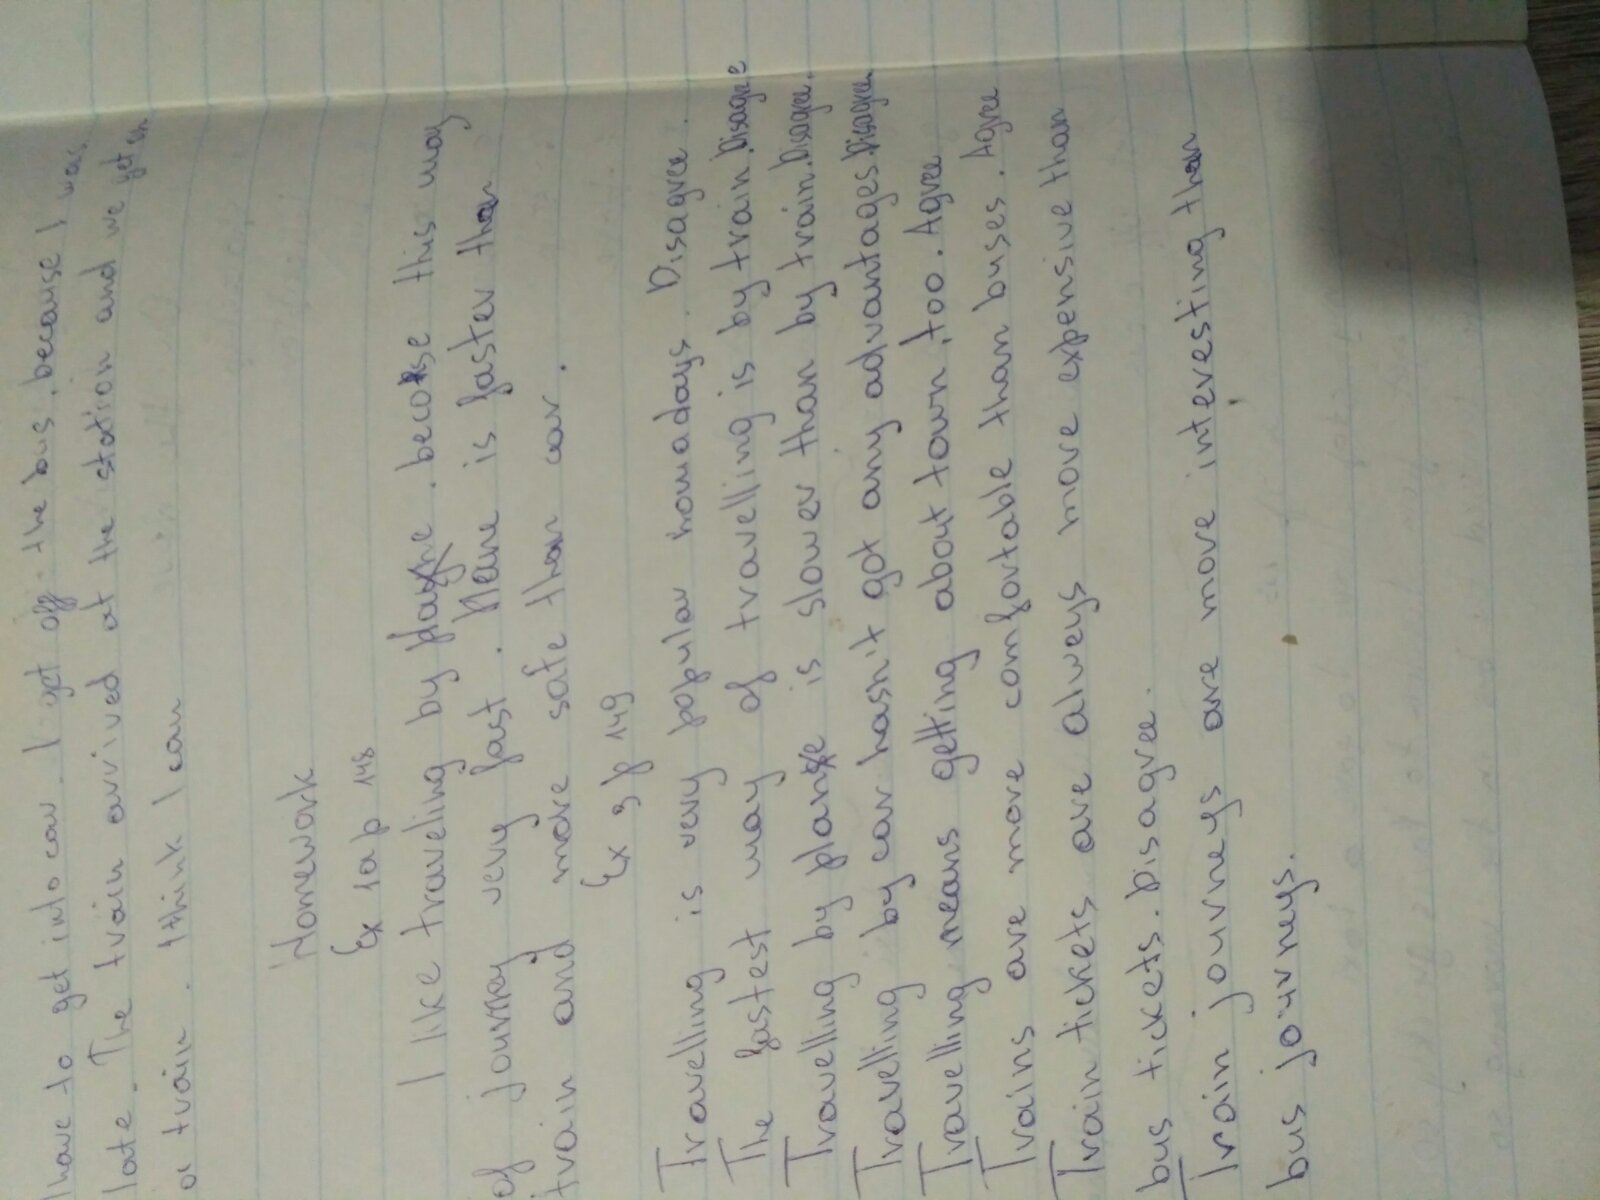 I have to get into car. I get off the bus, because I was
late. The train arrived at the station and we get on
a train. I think I can
Homework
Ex 10 p 148
I like traveling by plane, becouse this way
of journey very fast. Plane is faster than
train and more safe than car.
Ex 9 p 149
Travelling is very popular nowadays. Disagree.
The fastest way of travelling is by train. Disagre
Travelling by plane is slower than by train. Disagree.
Travelling by car hasn't got any advantages. Disagree.
Travelling means getting about town, too. Agree
Trains are more comfortable than buses. Agree
Train tickets are always more expensive than
bus tickets. Disagree.
Train journeys are more interesting than
bus journeys.